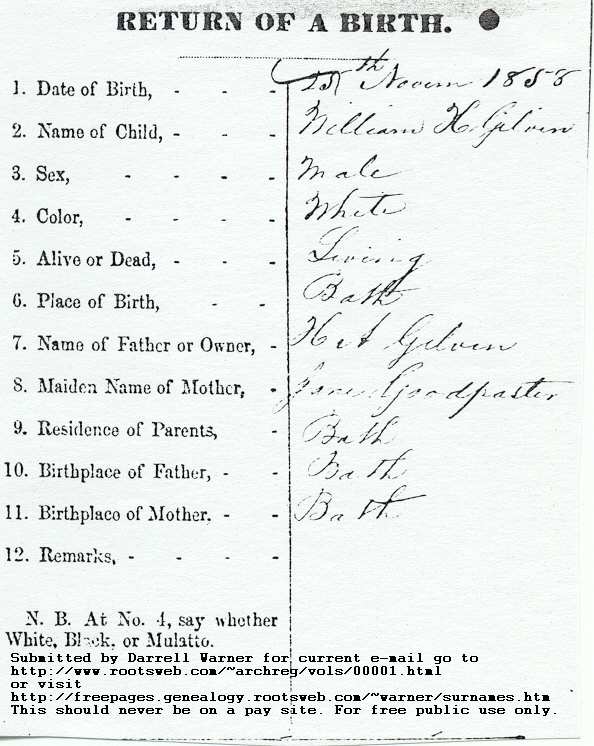 RETURN OF A BIRTH.
1. Date of Birth, - - - 25th Novem 1858
2. Name of Child, - - - William H. Gilvin
3. Sex, - - - - Male
4. Color, - - - - White
5. Alive or Dead, - - - Living
6. Place of Birth, - - Bath
7. Name of Father or Owner, - H A Gilvin
8. Maiden Name of Mother, - Jane Goodpaster
9. Residence of Parents, - Bath
10. Birthplace of Father, - - Bath
11. Birthplace of Mother. - - Bath
12. Remarks, - - - -
N. B. At No. 4, say whether
White, Black, or Mulatto.
Submitted by Darrell Warner for current e-mail go to
http://www.rootsweb.com/~archreg/vols/00001.html
or visit
http://freepages.genealogy.rootsweb.com/~warner/surnames.htm
This should never be on a pay site. For free public use only.